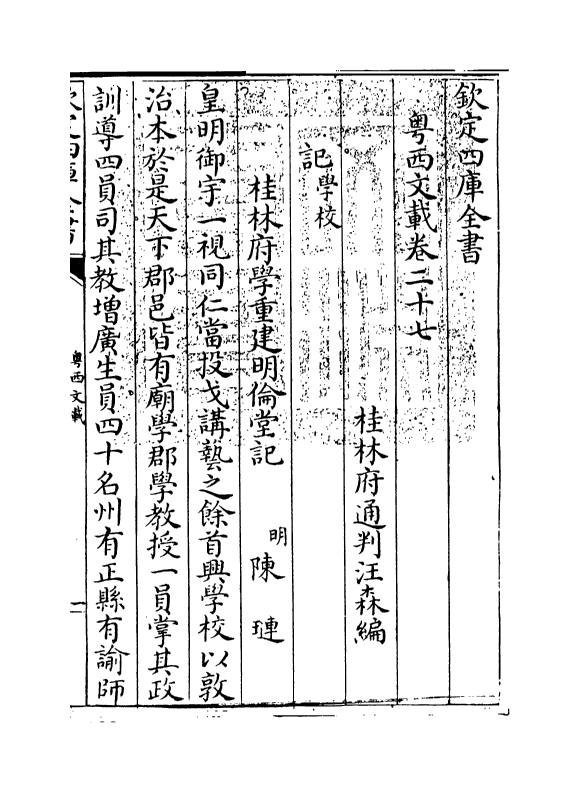 欽定四庫全書
粤西文載卷二十七
桂林府通判汪森編
記學校
桂林府學重建明倫堂記　明陳璉
皇明御宇一視同仁當投戈講藝之餘首興學校以敦
治本於是天下郡邑皆有廟學郡學教授一員掌其政
訓導四員司其教增廣生員四十名州有正縣有諭師
粤西文載
一